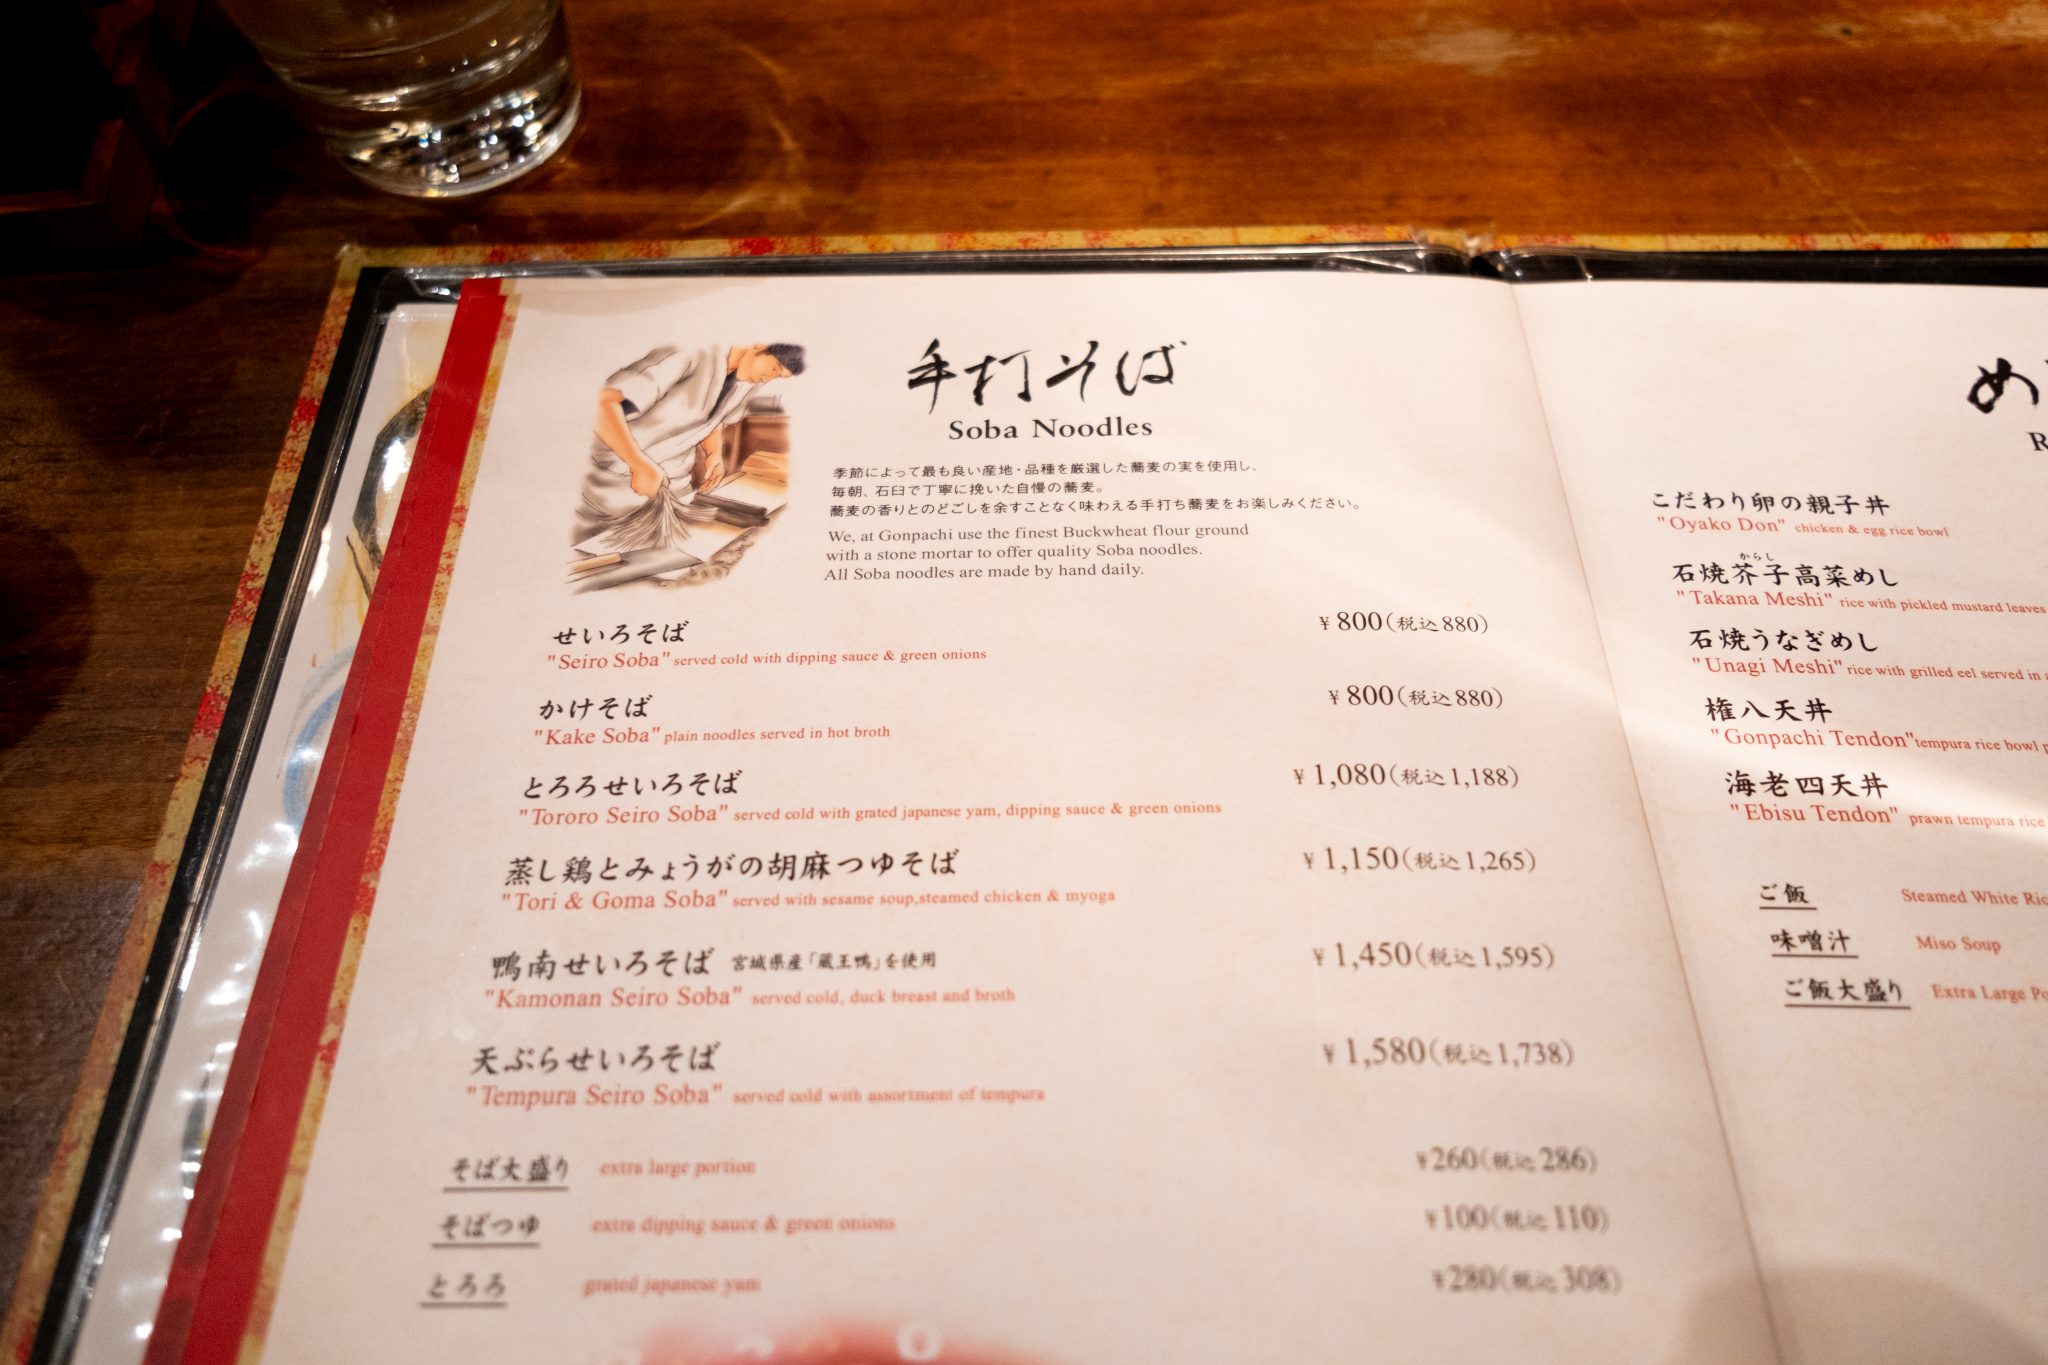 手打そば
Soba Noodles
季節によって最も良い産地・品種を厳選した蕎麦の実を使用し、
毎朝、石臼で丁寧に挽いた自慢の蕎麦。
蕎麦の香りとのどごしを余すことなく味わえる手打ち蕎麦をお楽しみください。
We, at Gonpachi use the finest Buckwheat flour ground
with a stone mortar to offer quality Soba noodles.
All Soba noodles are made by hand daily.
せいろそば ¥800(税込880)
"Seiro Soba" served cold with dipping sauce & green onions
かけそば ¥800(税込880)
"Kake Soba" plain noodles served in hot broth
とろろせいろそば ¥1,080(税込1,188)
"Tororo Seiro Soba" served cold with grated japanese yam, dipping sauce & green onions
蒸し鶏とみょうがの胡麻つゆそば ¥1,150(税込1,265)
"Tori & Goma Soba" served with sesame soup,steamed chicken & myoga
鴨南せいろそば 宮城県産「蔵王鴨」を使用 ¥1,450(税込1,595)
"Kamonan Seiro Soba" served cold, duck breast and broth
天ぷらせいろそば ¥1,580(税込1,738)
"Tempura Seiro Soba" served cold with assortment of tempura
そば大盛り extra large portion ¥260(税込286)
そばつゆ extra dipping sauce & green onions ¥100(税込110)
とろろ grated japanese yam ¥280(税込308)
め
R
こだわり卵の親子丼
"Oyako Don" chicken & egg rice bowl
からし
石焼芥子高菜めし
"Takana Meshi" rice with pickled mustard leaves
石焼うなぎめし
"Unagi Meshi" rice with grilled eel served in
権八天丼
"Gonpachi Tendon" tempura rice bowl
海老四天丼
"Ebisu Tendon" prawn tempura rice
ご飯 Steamed White Ric
味噌汁 Miso Soup
ご飯大盛り Extra Large Po